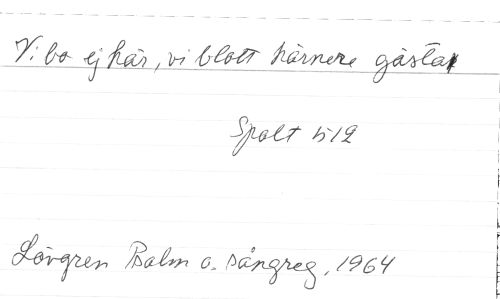 Vi bo ej här, vi blott härnere gästa
Spalt 512
Lövgren Psalm o. sångreg, 1964